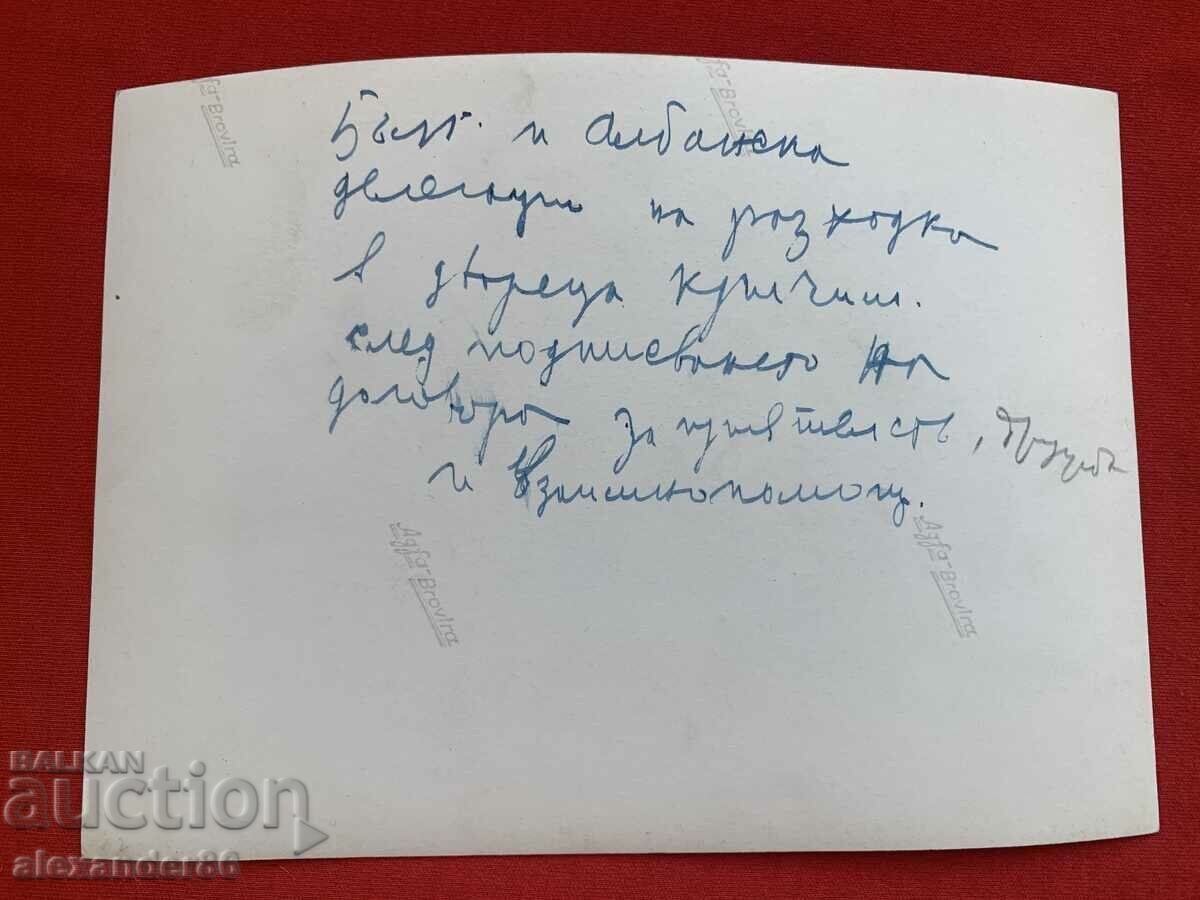 Бълг. и Албанска
делегации на разходка
в двореца Кричим.
след подписването на
договора за приятелство, дружба
и взаимопомощ.
fa-Brovira
fa-Brovira
Agfa-Brovira
Agfa-Brovira
BALKAN
auction
alexander86